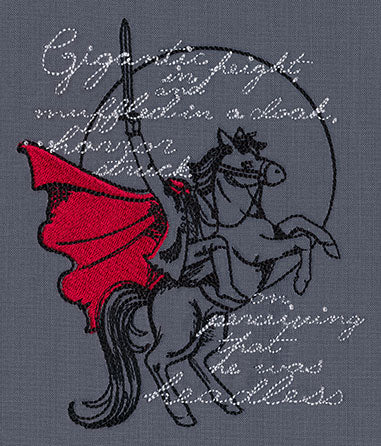 Gigantic height,
in and
muffled in a cloak,
horror
struck
on
perceiving
that
he was
headless